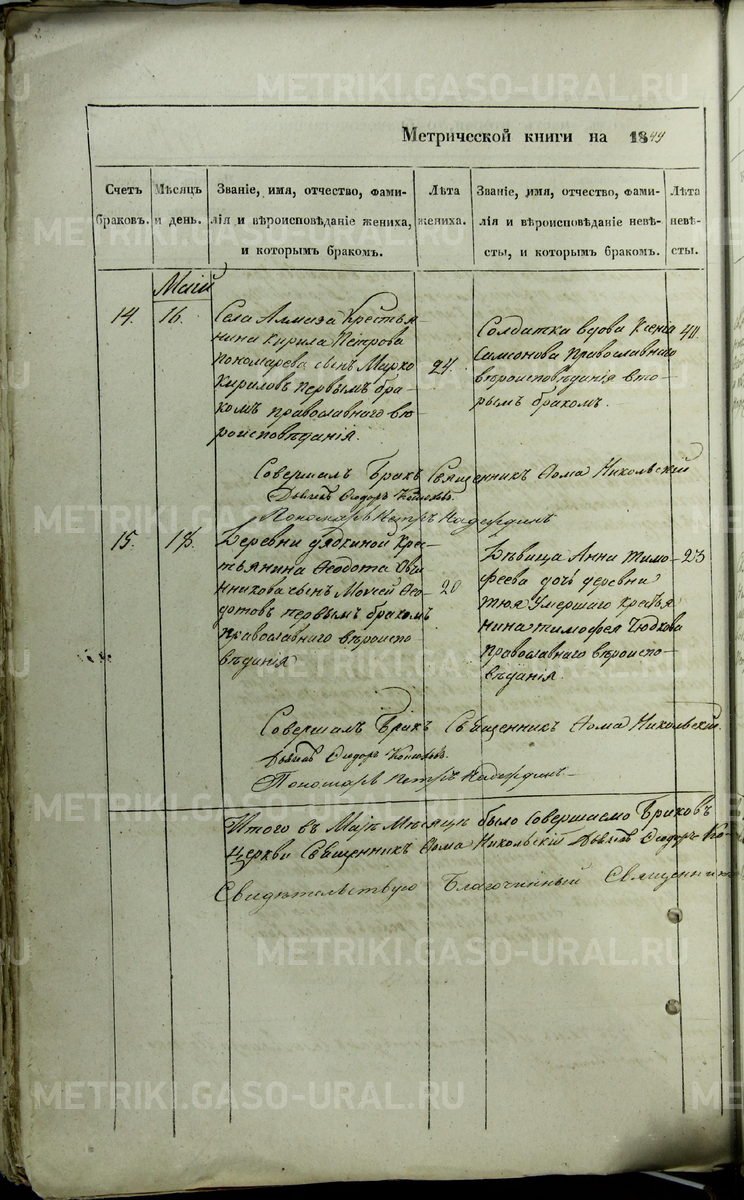 METRIKI.GASO-URAL.RU
Метрической книги на 1844
Счетъ браковъ.
Мѣсяцъ и день.
Званіе, имя, отчество, фами-
лія и вѣроисповѣданіе жениха,
и которымъ бракомъ.
Лѣта жениха.
Званіе, имя, отчество, фами-
лія и вѣроисповѣданіе невѣ-
сты, и которымъ бракомъ.
Лѣта невѣ-
сты.
Маій
14.
16.
Села Алмаза Крестья-
нина Кирила Петрова
Пономарева сынъ Марко
Кириловъ первымъ бра-
комъ православнаго вѣ-
роисповѣданія.
24.
Солдатка вдова Ксенія
Самсонова Православнаго
вѣроисповѣданія вто-
рымъ бракомъ.
40.
Совершалъ Бракъ Священникъ Ѳома Никольскій
Дьячекъ Ѳеодоръ
Пономарь Петръ
15.
18.
Деревни Крес-
тьянина Ѳедота Овчи-
нникова сынъ Моисей Ѳео-
дотовъ первымъ бракомъ
православнаго вѣроиспо-
вѣданія
20
Дѣвица Анна Тимо-
феева дочь деревни
Тюя Умершаго Крестья
нина Тимофея Чюдкова
православнаго вѣроиспо-
вѣданія.
23
Совершалъ Бракъ Священникъ Ѳома Никольскій.
Дьячекъ Ѳеодоръ
Пономарь Петръ
Итого въ Маѣ Мѣсяцѣ было совершаемо Браковъ
Церкви Священникъ Ѳома Никольскій Ѳеодоръ
Свидѣтельствую Благочинный Священникъ